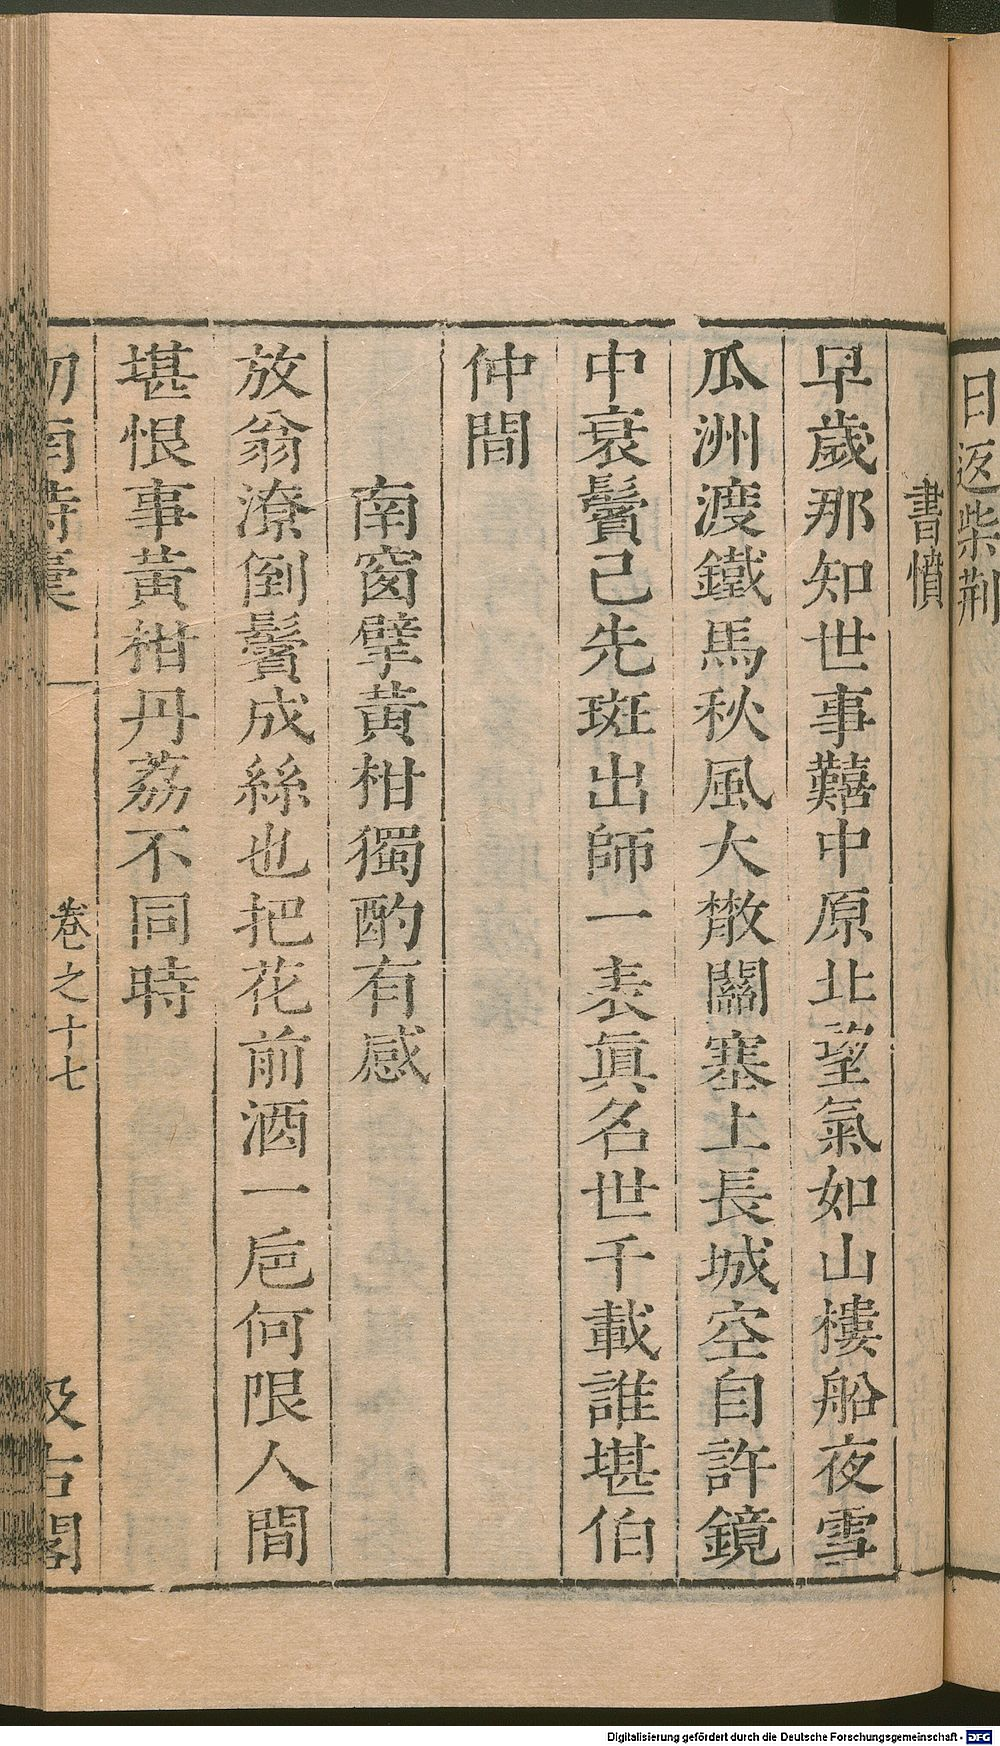 日返柴荆
書憤
早歲那知世事艱中原北望氣如山樓船夜雪
瓜洲渡鐵馬秋風大散關塞上長城空自許鏡
中衰鬢己先斑出師一表眞名世千載誰堪伯
仲間
南窗擘黃柑獨酌有感
放翁潦倒鬢成絲也把花前酒一巵何限人間
堪恨事黃柑丹荔不同時
劒南詩稾 卷之十七 汲古閣
Digitalisierung gefördert durch die Deutsche Forschungsgemeinschaft - DFG